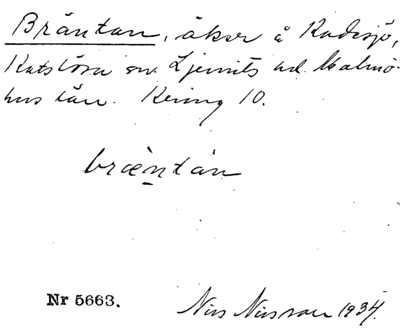 Bräntan, åker å Radesjö,
Katslösa sn. Ljunits hd. Malmö-
hus län. Kering 10.
bræntan
Nr 5663. Nils Nilsson 1934.